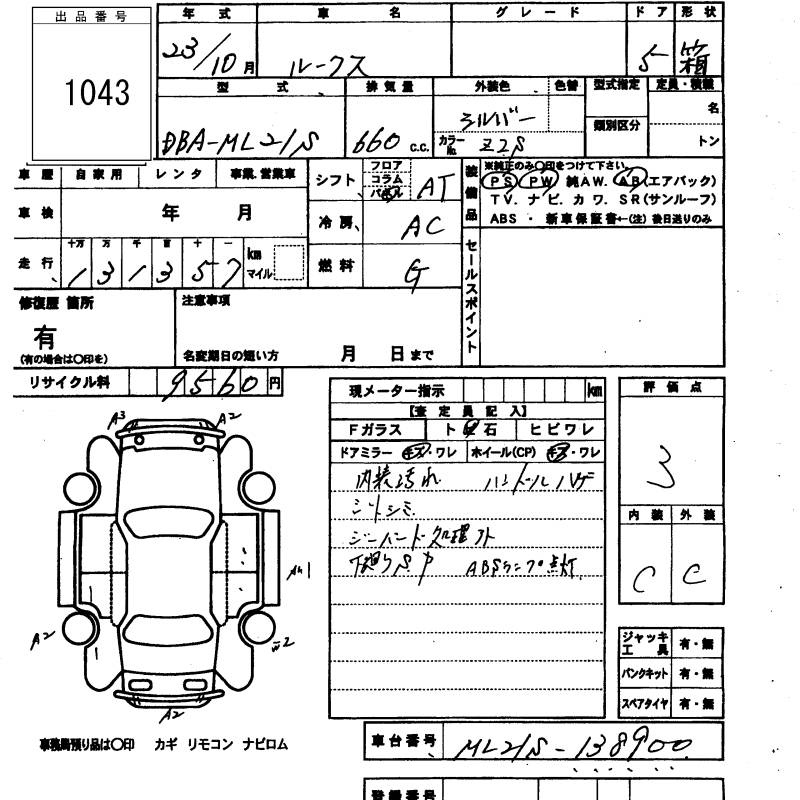 出品番号
1043
年式 車名 グレード ドア 形状
23/10月 ルークス 5 箱
型式 排気量 外装色 色替 型式指定 定員・積載
DBA-ML21S 660 c.c. シルバー カラーNo. Z2S 類別区分 名 トン
車歴 自家用 レンタ 事業.営業車
車検 年 月
走行 十万 万 千 百 十 一 km マイル
131357
シフト フロア コラム パネル AT
冷房 AC
燃料 G
装備品 ※純正のみ〇印をつけて下さい。
PS PW 純AW. AB(エアバック)
TV. ナビ. カワ. SR(サンルーフ)
ABS ・ 新車保証書←(注) 後日送りのみ
セールスポイント
修復歴 箇所
有
(有の場合は〇印を)
注意事項
名変期日の短い方 月 日まで
リサイクル料 9560円
現メーター指示 km
【査定員記入】
Fガラス ト 石 ヒビワレ
ドアミラー キズ・ワレ ホイール(CP) キズ・ワレ
内装汚れ ハンドルハゲ
シートシミ
処理
下廻りS ABSランプ点灯
評価点
3
内装 外装
C C
ジャッキ 工具 有・無
パンクキット 有・無
スペアタイヤ 有・無
A3 A2
A2
A2
事務局預り品は〇印 カギ リモコン ナビロム
車台番号 ML21S-138900
登録番号